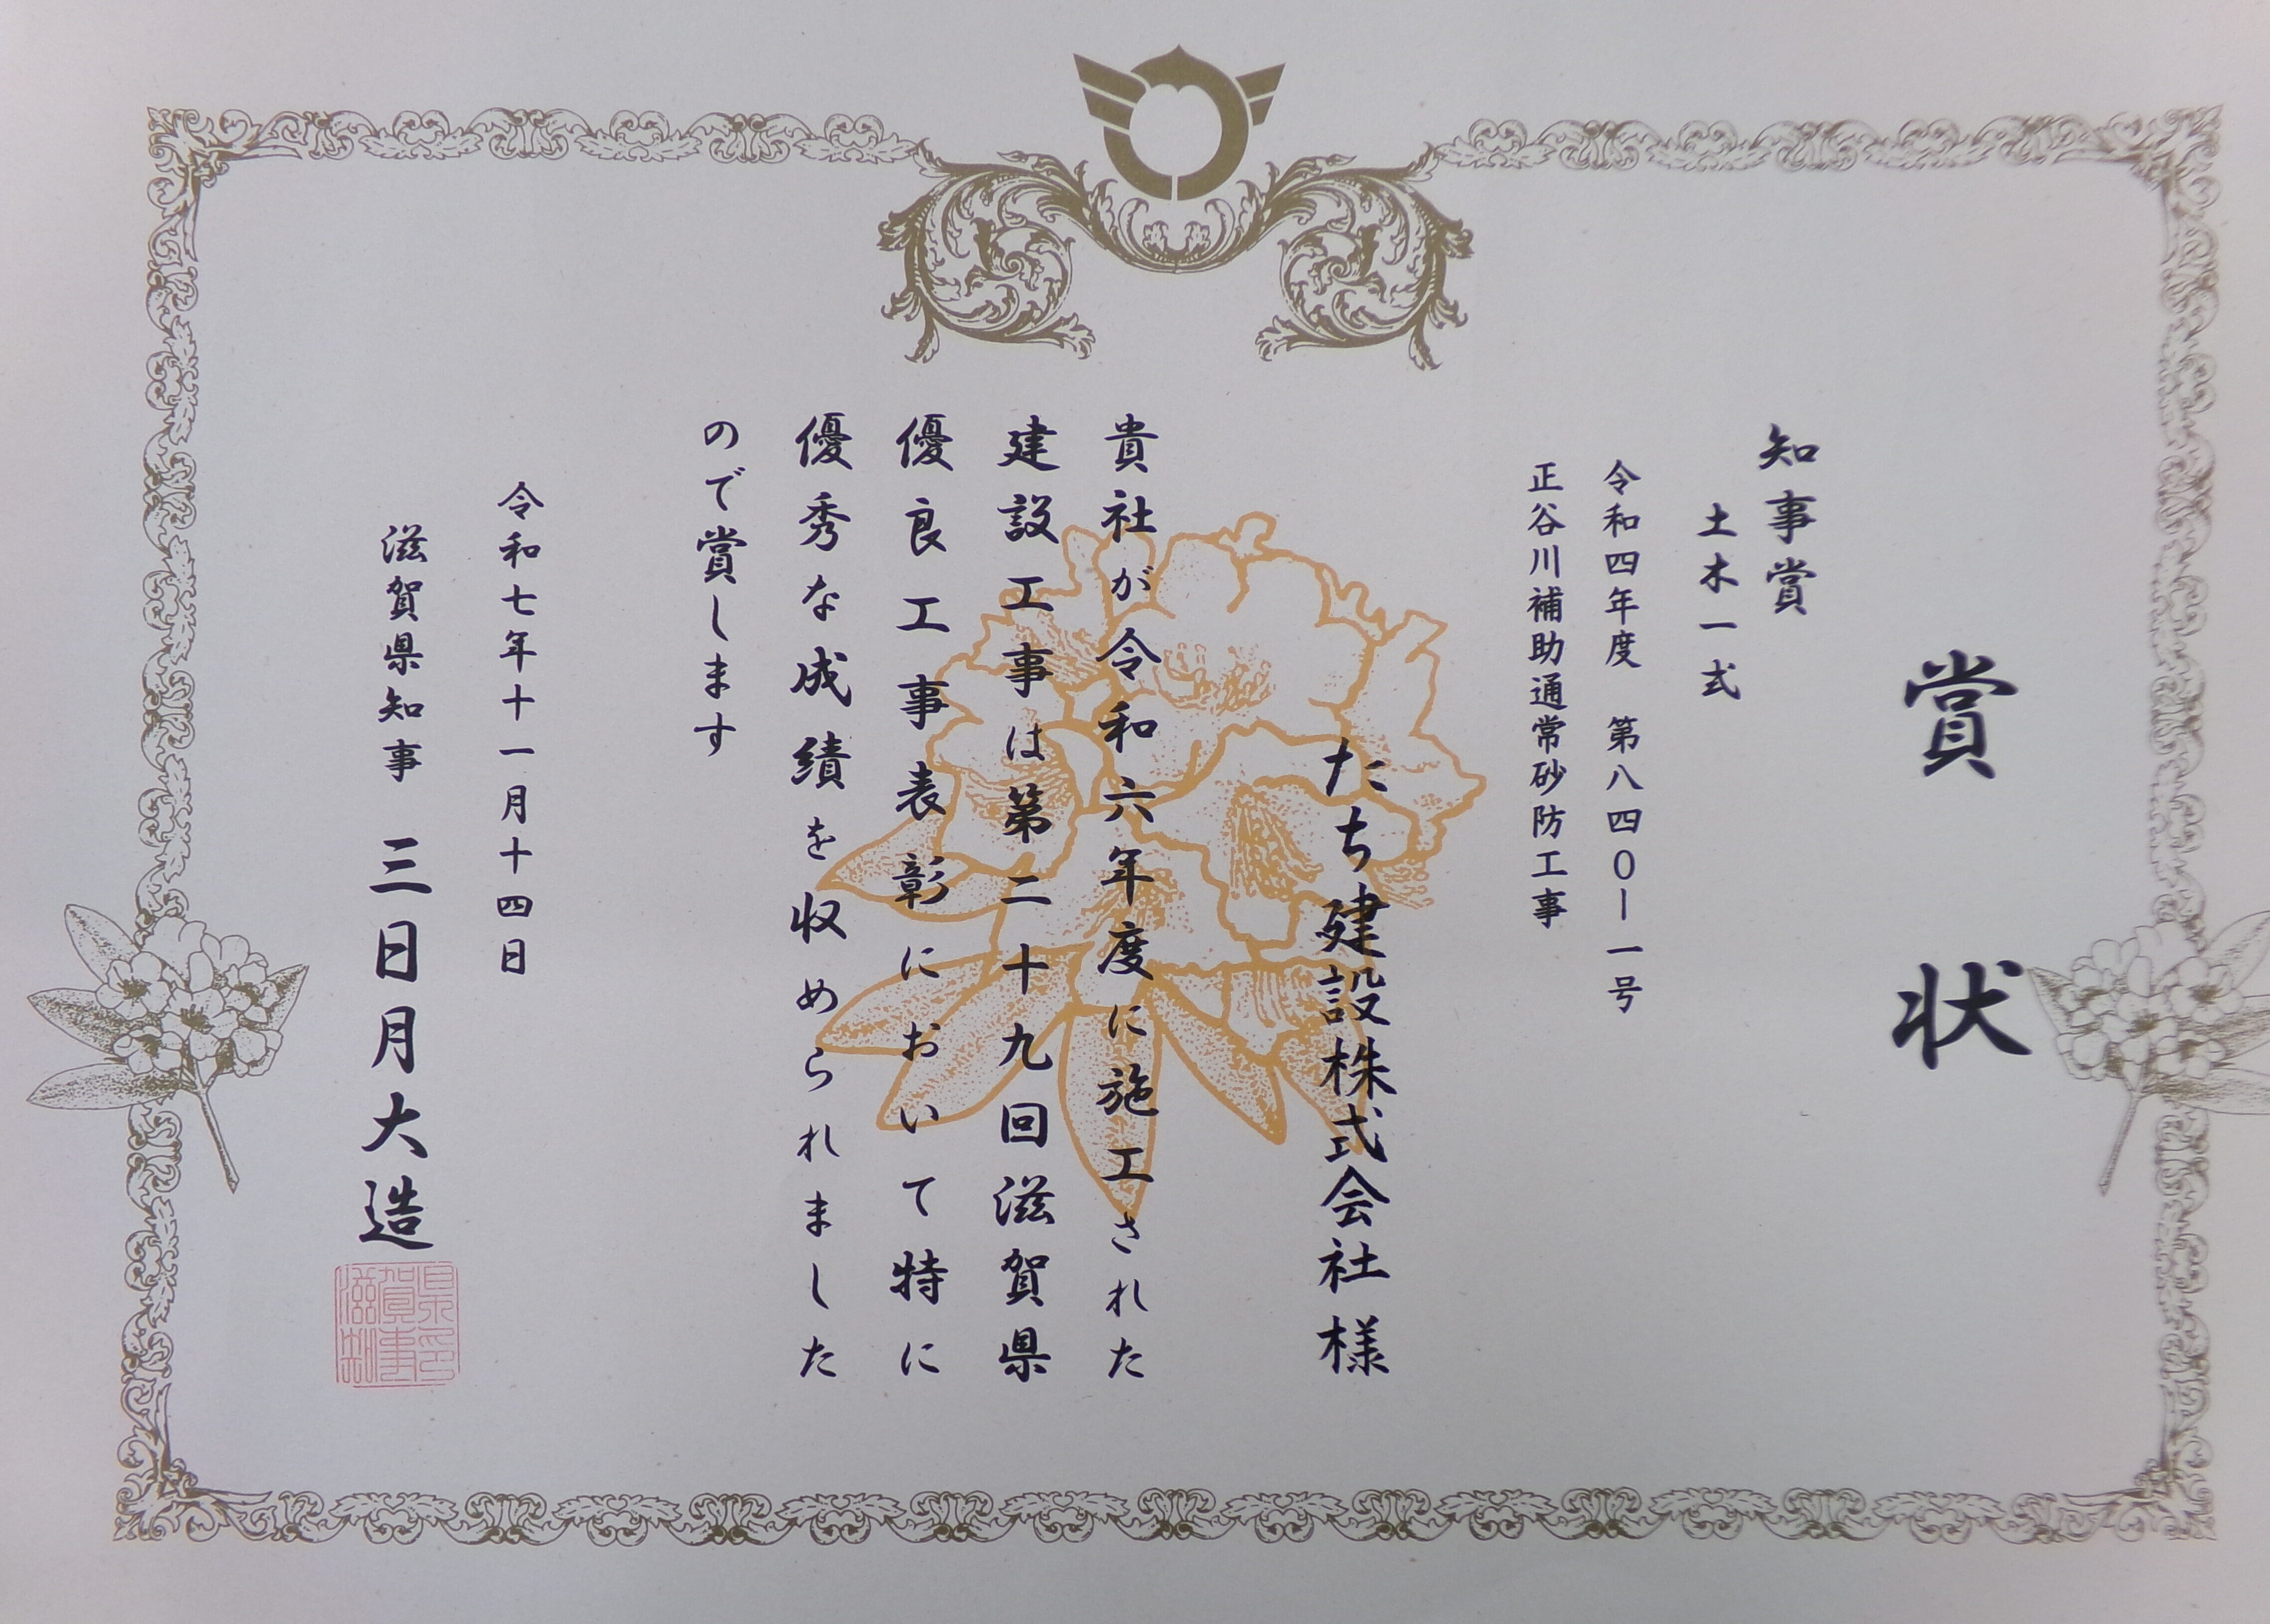 賞状
知事賞
土木一式
令和四年度　第八四〇ー一号
正谷川補助通常砂防工事
たち建設株式会社様
貴社が令和六年度に施工された
建設工事は第二十九回滋賀県
優良工事表彰において特に
優秀な成績を収められました
ので賞します
令和七年十一月十四日
滋賀県知事　三日月大造
滋賀県知事印